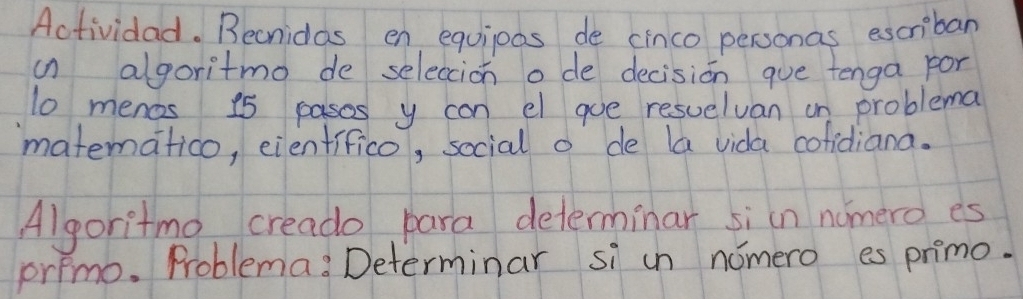 Actividad. Reunidos en equipos de cinco personas escriban
un algoritmo de selección o de decisión que tenga por
lo menos 15 pasos y con el que resuelvan un problema
matemático, científico, social o de la vida cotidiana.
Algoritmo creado para determinar si un número es
primo. Problema: Determinar si un número es primo.